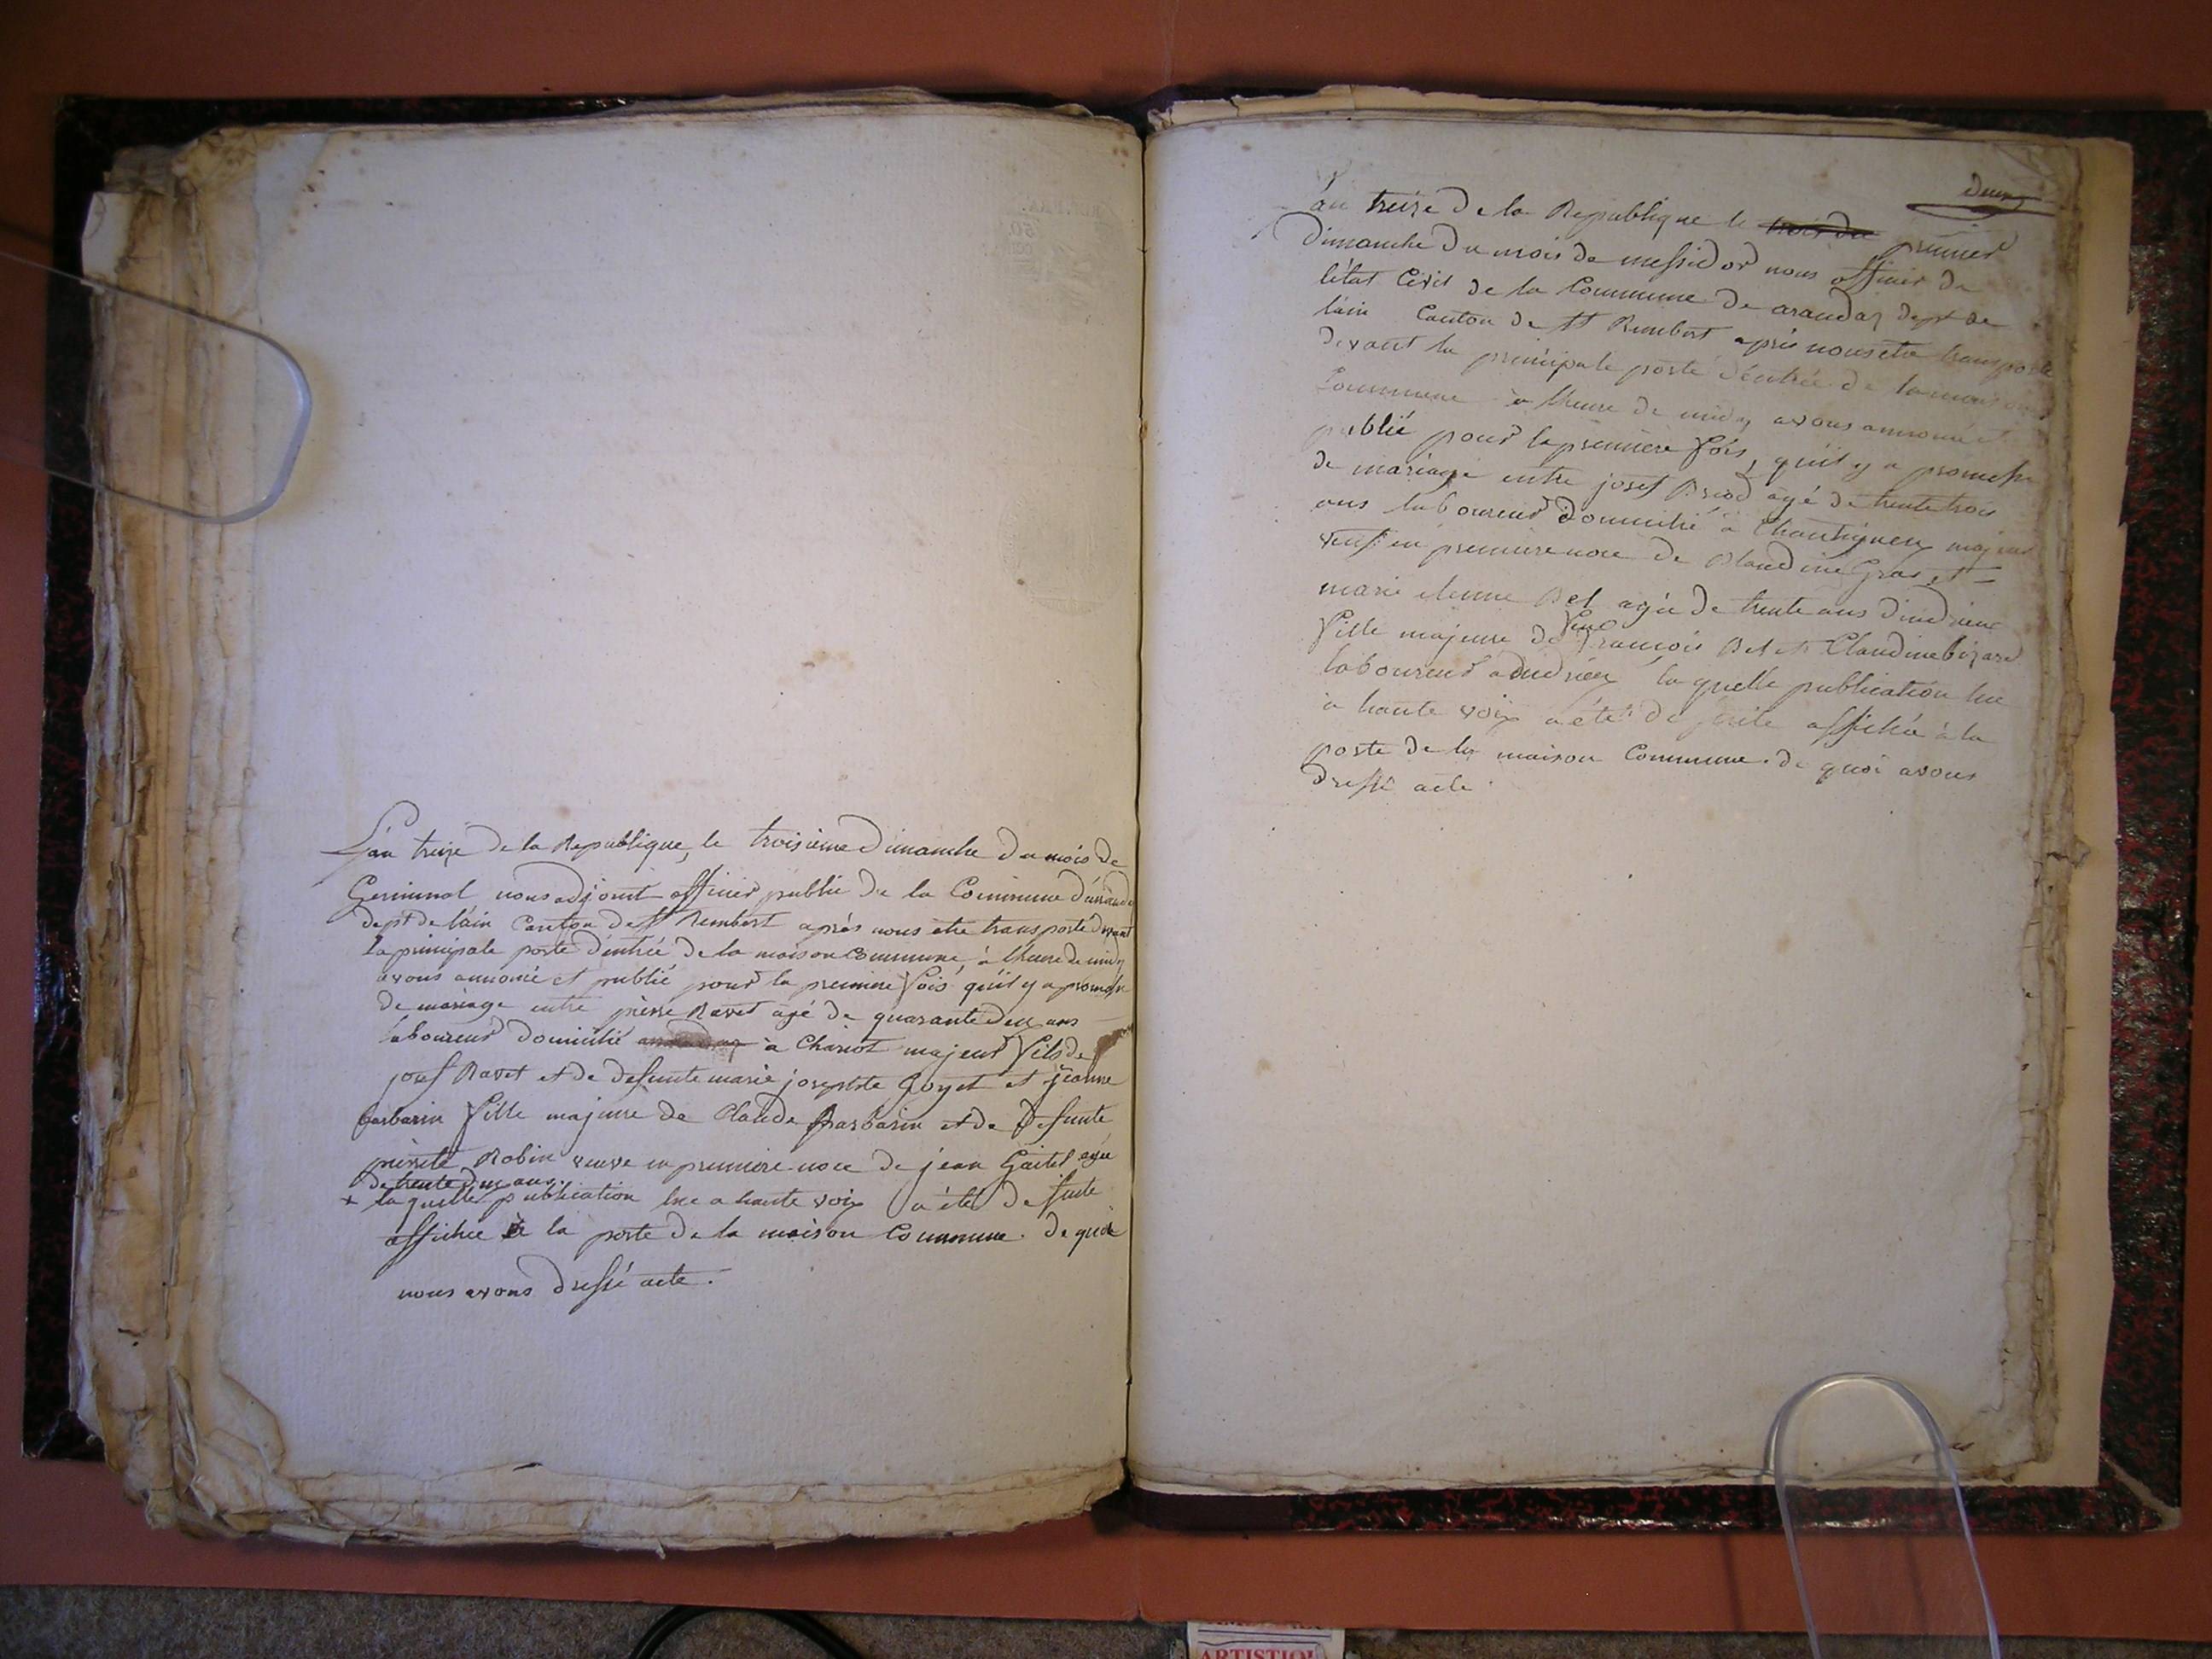 L'an treize de la Republique, le troisieme Dimanche du mois de
Germinal nous adjoint officier public de la Commune d'arandas
dept de l'ain Canton de St Rembert après nous être transporté devant
la principale porte d'entrée de la maison Commune, à lheure de midy
avons annoncé et publié pour la premiere fois qu'il y a promesse
de mariage entre pierre Ravet agé de quarante deux ans
laboureur domicilié à Chariot majeur fils de
josef Ravet et de defunte marie josephte Goyet et jeanne
barbarin fille majeure de Claude Barbarin et de Defunte
Robin veuve en premiere noce de jean Gaitet agée
de trente deux ans.
+ laquelle publication lue a haute voix a été de suite
affichée à la porte de la maison Commune. de quoi
nous avons dressé acte.
deux
L'an treize de la Republique le trois du premier
Dimanche du mois de messidor nous officier de
létat Civil de la Commune de arandas dept de
lain Canton de St Rembert après nous etre transporté
devant la principale porte d'entrée de la maison
Commune à lheure de midy avons annoncé et
publié pour la premiere fois, qu'il y a promesse
de mariage entre josef Briod agé de trente trois
ans laboureur domicilié à majeur
veuf en premiere noce de Claudine Gras et
marie etienne Bel agée de trente ans
fille majeure de feu francois Bel et Claudine bizard
laboureur la quelle publication lue
à haute voix a été de suite affichée à la
porte de la maison Commune. de quoi avons
dressé acte.
ARTISTIQU